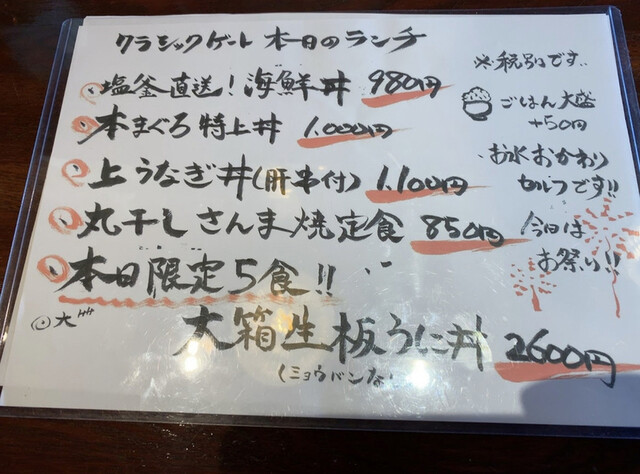 クラシックゲート 本日のランチ
※税別です..
塩釜直送!海鮮丼 980円
ごはん大盛
+50円
本まぐろ特上丼 1.000円
お水おかわり
セルフです!!
上うなぎ丼(肝串付) 1.100円
丸干しさんま焼定食 850円
今日は
お祭り!!
本日限定5食!!
大箱生板うに丼 2600円
(ミョウバンな